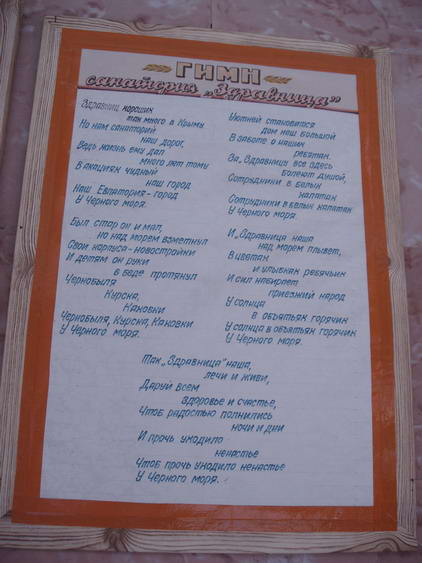 ГИМН
санатория „Здравница”
Здравниц хороших
так много в Крыму
Но нам санаторий
наш дорог,
Ведь жизнь ему дал
много лет тому
В акациях чудный
наш город
Наш Евпатория-город
У Черного моря.
Был стар он и мал,
но над морем взметнул
Свои корпуса-новостройки
И детям он руки
в беде протянул
Чернобыля
Курска,
Каховки
Чернобыля, Курска, Каховки
У Черного моря.
Уютней становится
дом наш большой
В заботе о наших
ребятах.
За „Здравницу" все здесь
болеют душой,
Сотрудники в белых
халатах
Сотрудники в белых халатах
У Черного моря.
И „Здравница наша
над морем плывет,
В цветах
и улыбках ребячьих
И сил набирает
приезжий народ
У солнца
в объятьях горячих
У солнца в объятьях горячих
У Черного моря.
Так „Здравница" наша,
лечи и живи,
Даруй всем
здоровье и счастье,
Чтоб радостью полнились
ночи и дни
И прочь уходило
ненастье
Чтоб прочь уходило ненастье
У Черного моря.